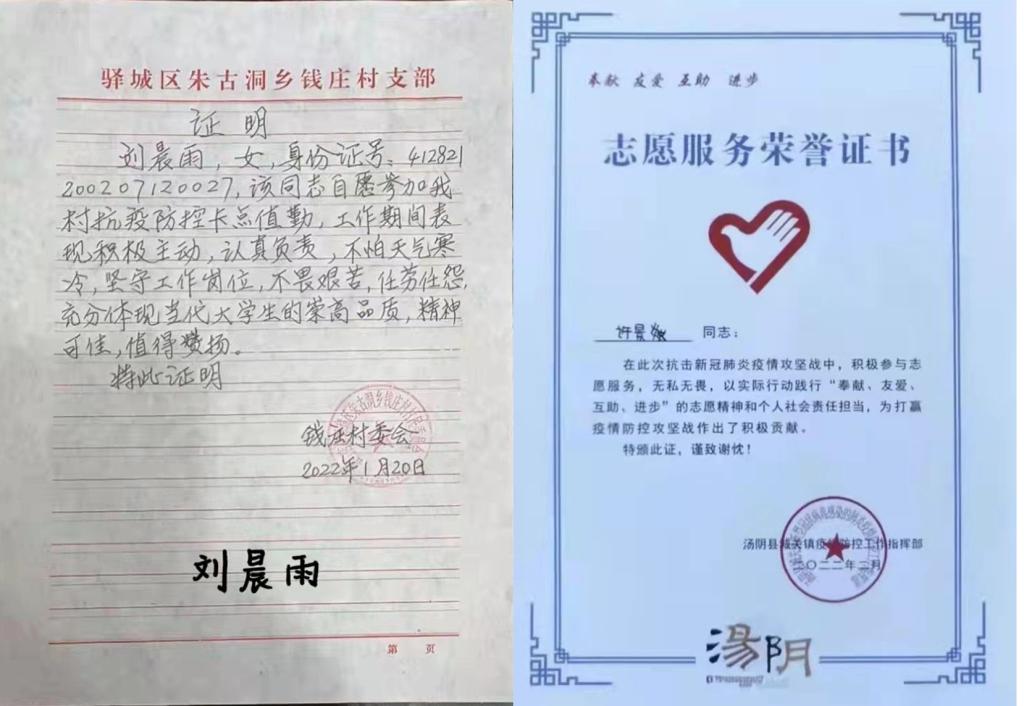 驿城区朱古洞乡钱庄村支部
证 明
刘晨雨，女，身份证号：412821
200207120027，该同志自愿参加我
村抗疫防控卡点值勤，工作期间表
现积极主动，认真负责，不怕天气寒
冷，坚守工作岗位，不畏艰苦，任劳任怨，
充分体现当代大学生的崇高品质，精神
可佳，值得赞扬。
特此证明
钱庄村委会
2022年1月20日
刘晨雨
第 页
奉献 友爱 互助 进步
志愿服务荣誉证书
同志：
在此次抗击新冠肺炎疫情攻坚战中，积极参与志
愿服务，无私无畏，以实际行动践行“奉献、友爱、
互助、进步”的志愿精神和个人社会责任担当，为打赢
疫情防控攻坚战作出了积极贡献。
特颁此证，谨致谢忱！
汤阴县城关镇疫情防控工作指挥部
二〇二二年二月
湯阴